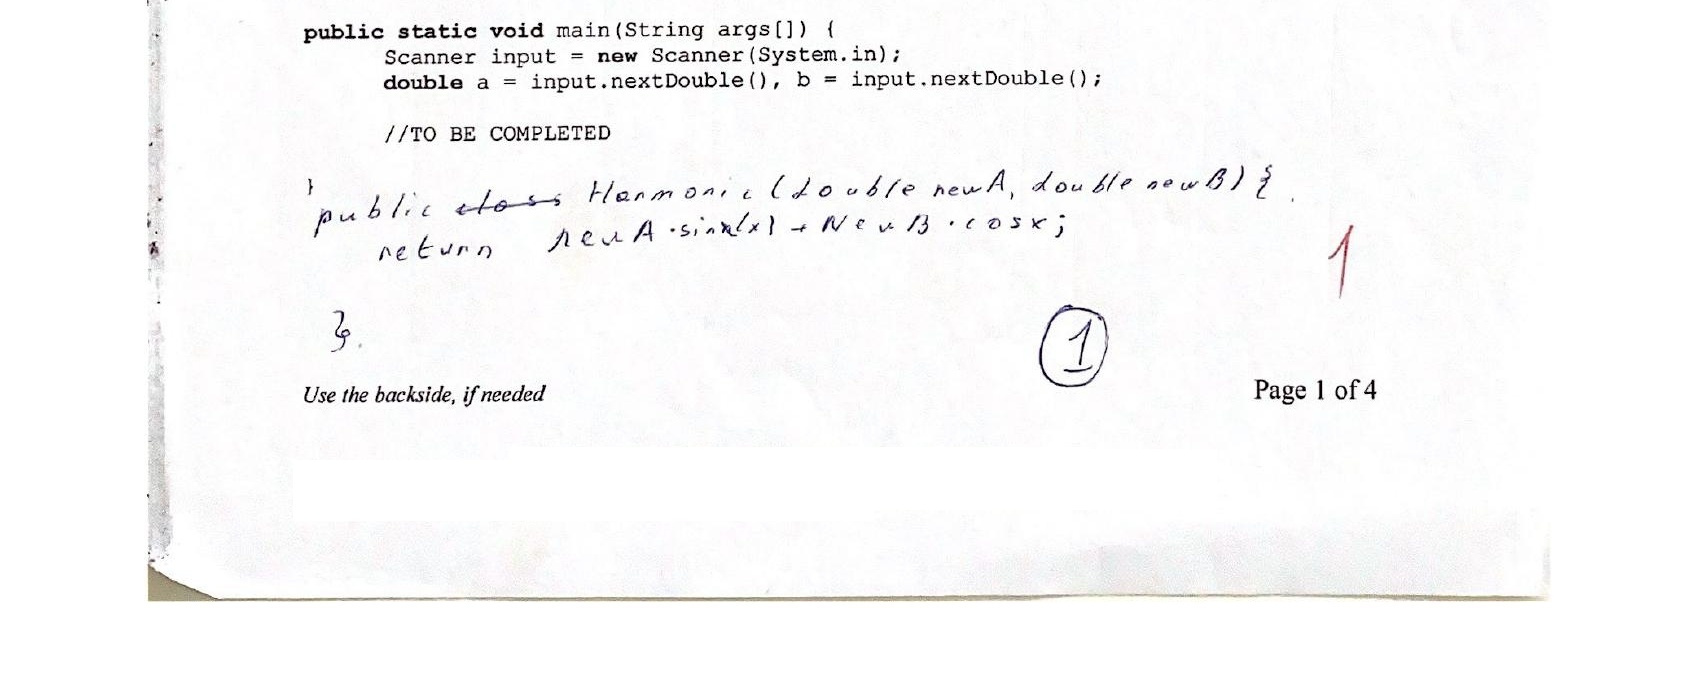 public static void main(String args[]) {
Scanner input = new Scanner(System.in);
double a = input.nextDouble(), b = input.nextDouble();
//TO BE COMPLETED
}
public class Harmonic (double newA, double newB) {
return newA · sinx(x) + NewB · cosx;
1
}.
1
Use the backside, if needed
Page 1 of 4